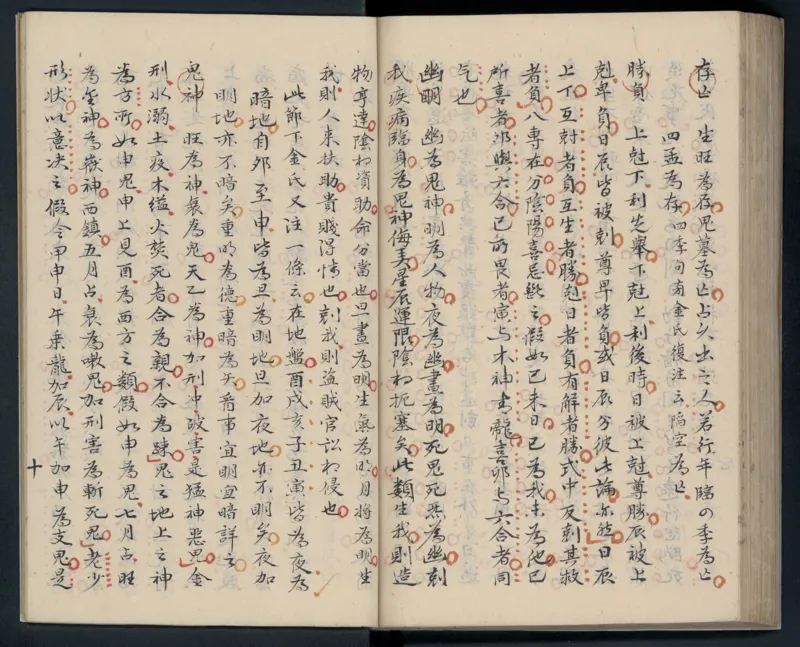 存亡 生旺為存死墓為亡占人出之人若行年臨の季為亡
四孟為存 四季句有金氏復注云陷空為亡
勝負 上尅下利先舉下尅上利後時日被上尅尊勝辰被上
尅卑負日辰皆被剋尊卑皆負或日辰分彼此論亦然日辰
上下互尅者負互生者勝尅日者負有解者勝式中反剋其救
者負八專在分陰陽喜忌斷之假如己未日己為我未為他己
所喜者卯與六合己所畏者寅与木神青龍喜卯与六合者同
气也
幽明 幽為鬼神明為人物夜為幽晝為明死鬼死炁為幽剋
我疾病臨身為鬼神侮弄星辰運限陰相扼塞矣此類生我則造
物亨達陰相資助命分當也旦晝為明生氣為明月將為明生
我則人来扶助貴賤得情也剋我則盜賊官訟相侵也
此節下金氏又注一條云在地盤酉戌亥子丑寅皆為夜為
暗地自卯至申皆為旦為明地旦加夜地亦不明矣夜加
明地亦不暗矣重明為德重暗為失看事宜明宜暗詳之
鬼神 旺為神衰為鬼天乙為神加刑冲破害最猛神惡鬼金
刑水溺土疫木縊火焚死者合為親不合為疎鬼之地上之神
為方所如申鬼申上見酉為西方之類假如申為鬼七月占旺
為金神為嶽神西鎮五月占衰為嗽鬼加刑害為斬死鬼老少
形状以意决之假令甲申日午乘龍加辰以午加申為支鬼是
十